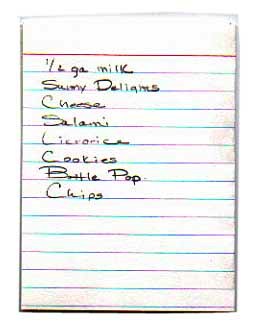 1/2 ga milk
Sunny Delights
Cheese
Salami
Licrorice
Cookies
Bottle Pop.
Chips